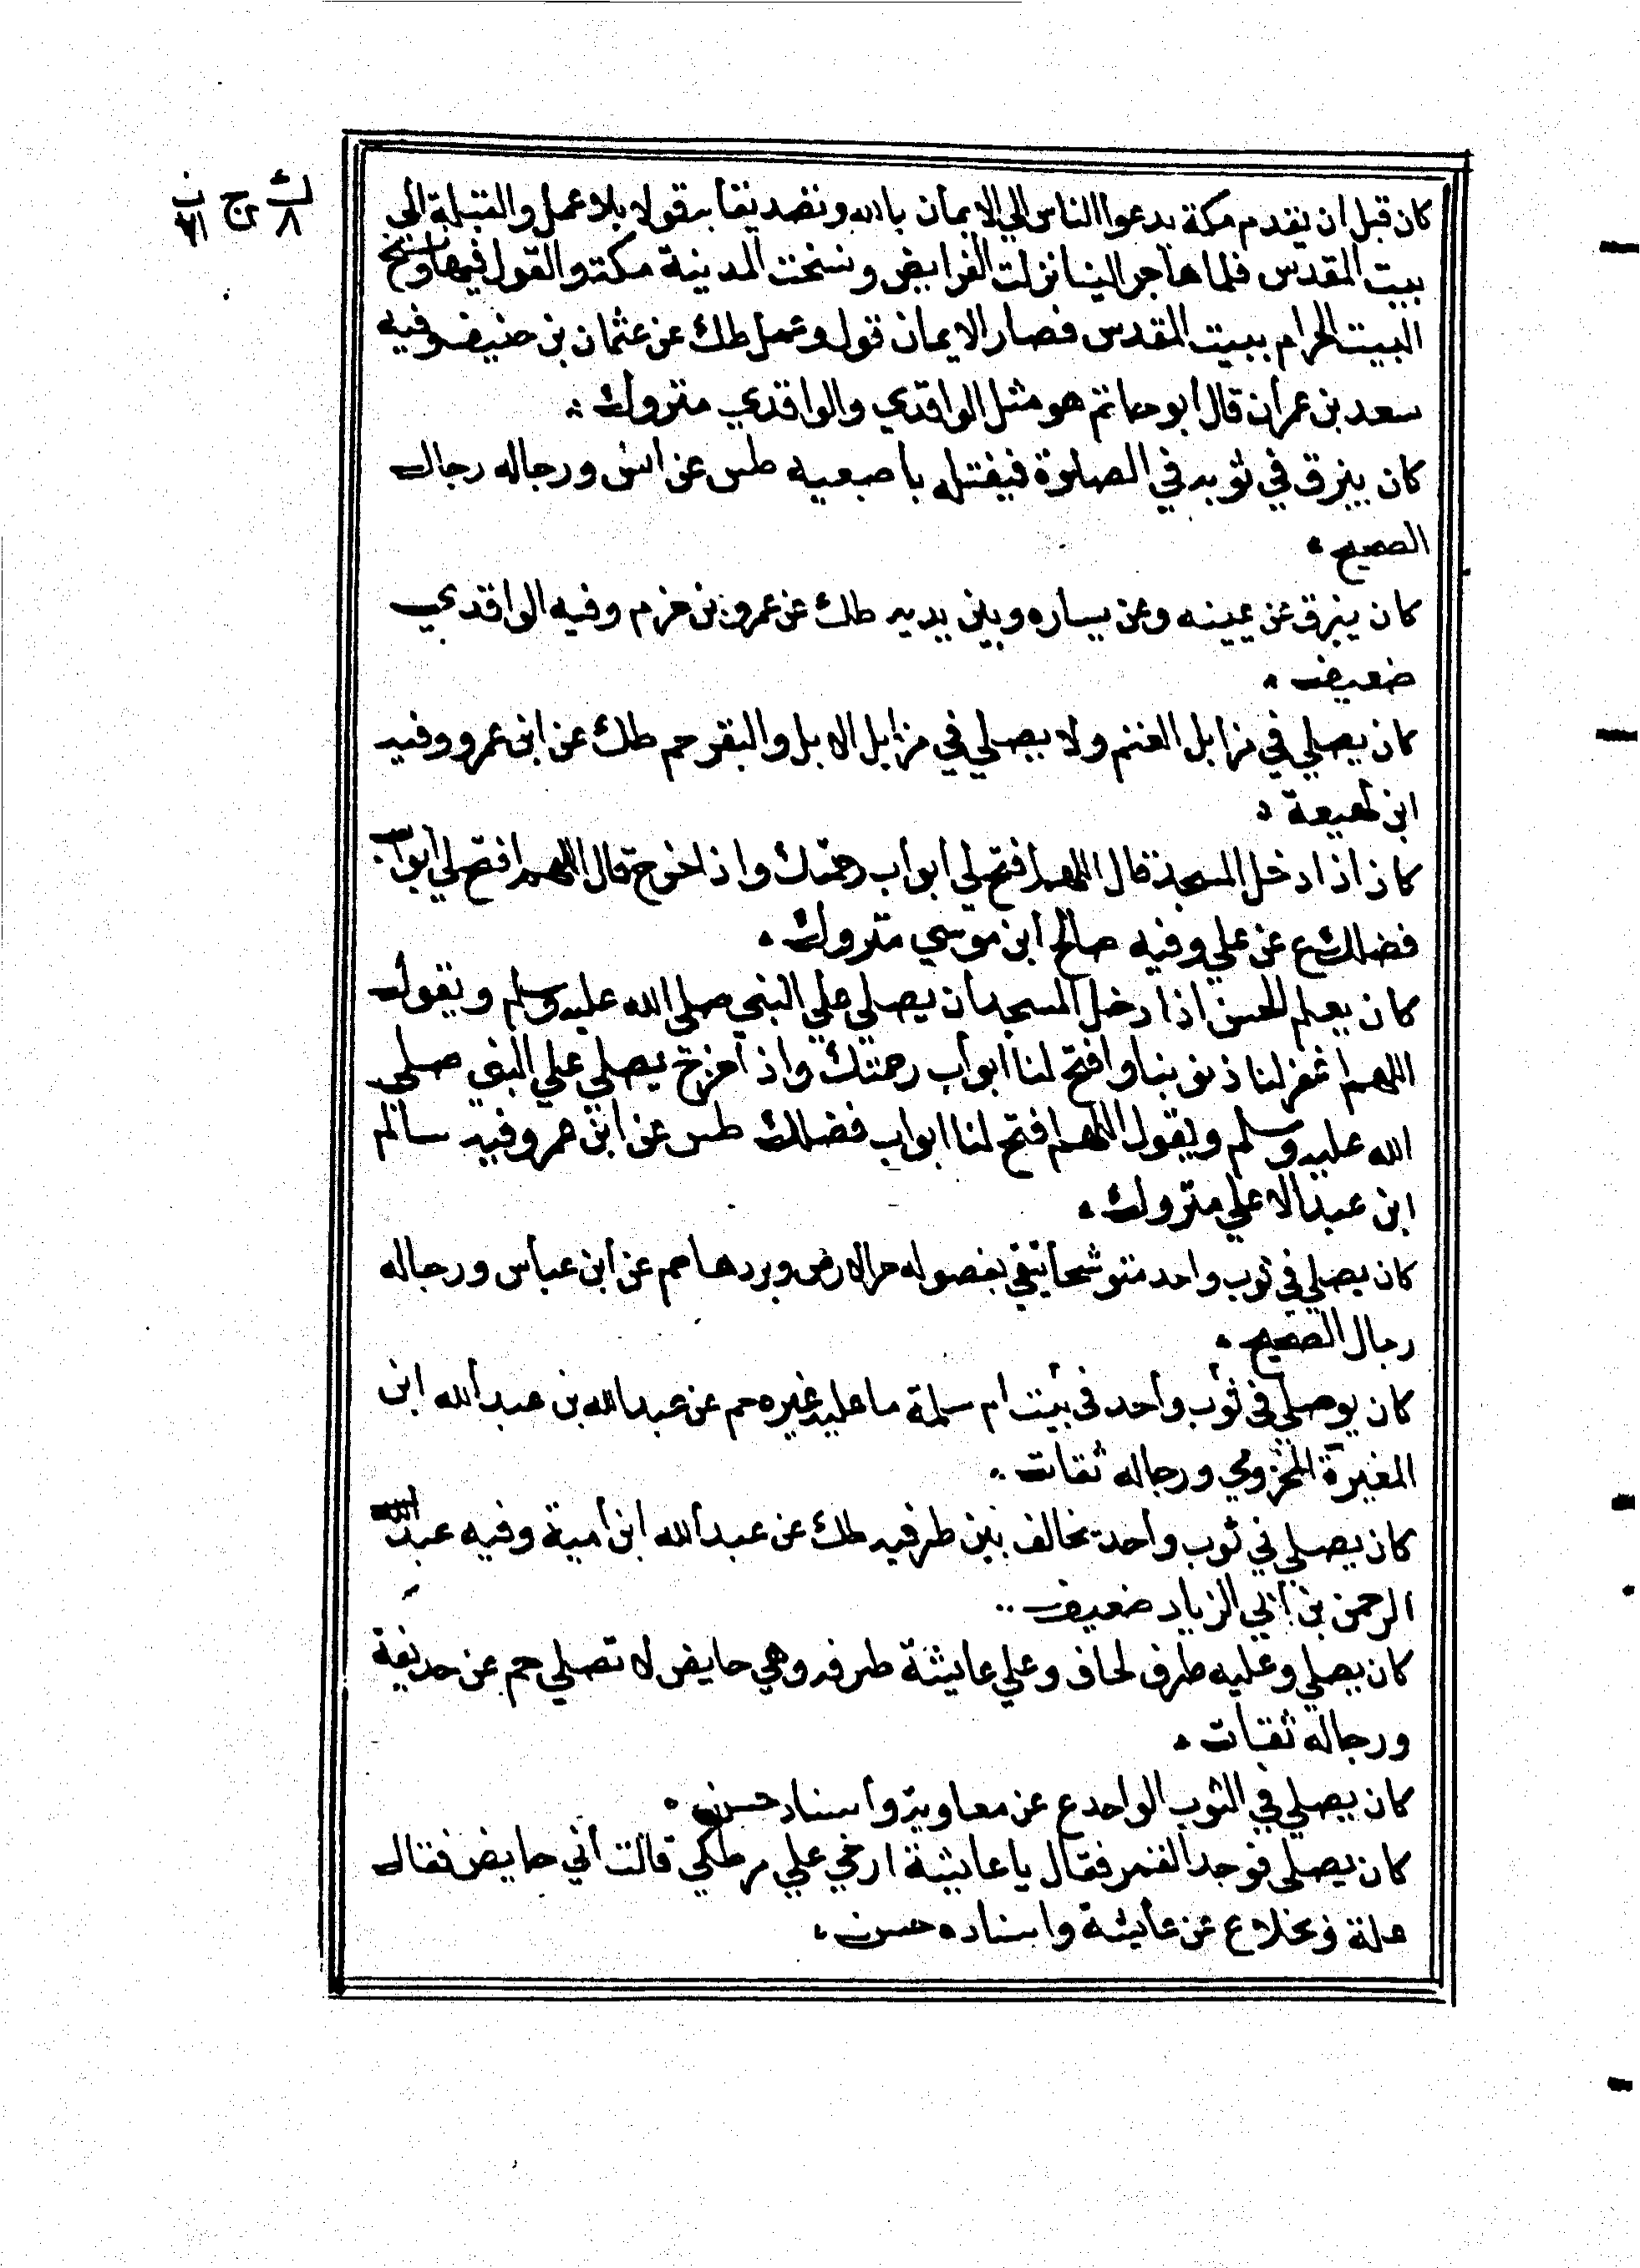 كان قبل ان يقدم مكة يدعوا الناس الي الايمان بالله وتصديقا به قولا بلا عمل والقبلة الي
بيت المقدس فلما هاجر الينا نزلت الفرايض ونسخت المدينة مكة والقول فيها ونسخ
البيت الحرام ببيت المقدس فصار الايمان قول وعمل طك عن عثمان بن حنيف وفيه
سعد بن عمران قال ابو حاتم هو مثل الواقدي والواقدي متروك
كان يبزق في ثوبه في الصلوة فيفتله باصبعيه طس عن انس ورجاله رجال
الصحيح
كان يبزق عن يمينه وعن يساره وبين يديه طك عن عمرو بن حزم وفيه الواقدي
ضعيف
كان يصلي في مزابل الغنم ولا يصلي في مزابل الابل والبقر حم طك عن ابن عمرو وفيه
ابن لهيعة
كان اذا دخل المسجد قال اللهم افتح لي ابواب رحمتك واذا خرج قال اللهم افتح لي ابواب
فضلك ع عن علي وفيه صالح ابن موسي متروك
كان يعلم الحسن اذا دخل المسجد ان يصلي علي النبي صلي الله عليه وسلم ويقول
اللهم اغفر لنا ذنوبنا وافتح لنا ابواب رحمتك واذا خرج يصلي علي النبي صلي
الله عليه وسلم ويقول اللهم افتح لنا ابواب فضلك طس عن ابن عمر وفيه سالم
ابن عبد الاعلي متروك
كان يصلي في ثوب واحد متوشحا يتقي بفضوله حر الارض وبردها حم عن ابن عباس ورجاله
رجال الصحيح
كان يوصلي في ثوب واحد في بيت ام سلمة ما عليه غيره حم عن عبد الله بن عبد الله ابن
المغيرة المخزومي ورجاله ثقات
كان يصلي في ثوب واحد يخالف بين طرفيه طك عن عبد الله ابن امية وفيه عبد الله
الرحمن بن ابي الزياد ضعيف
كان يصلي وعليه طرف لحاف وعلي عايشة طرفه وهي حايض لا تصلي حم عن حذيفة
ورجاله ثقات
كان يصلي في الثوب الواحد ع عن معاوية واسناد حسن
كان يصلي فوجد القر فقال يا عايشة ارخي علي مرطكي قالت اني حايض فقال
علة وبخلا ع عن عايشة واسناده حسن